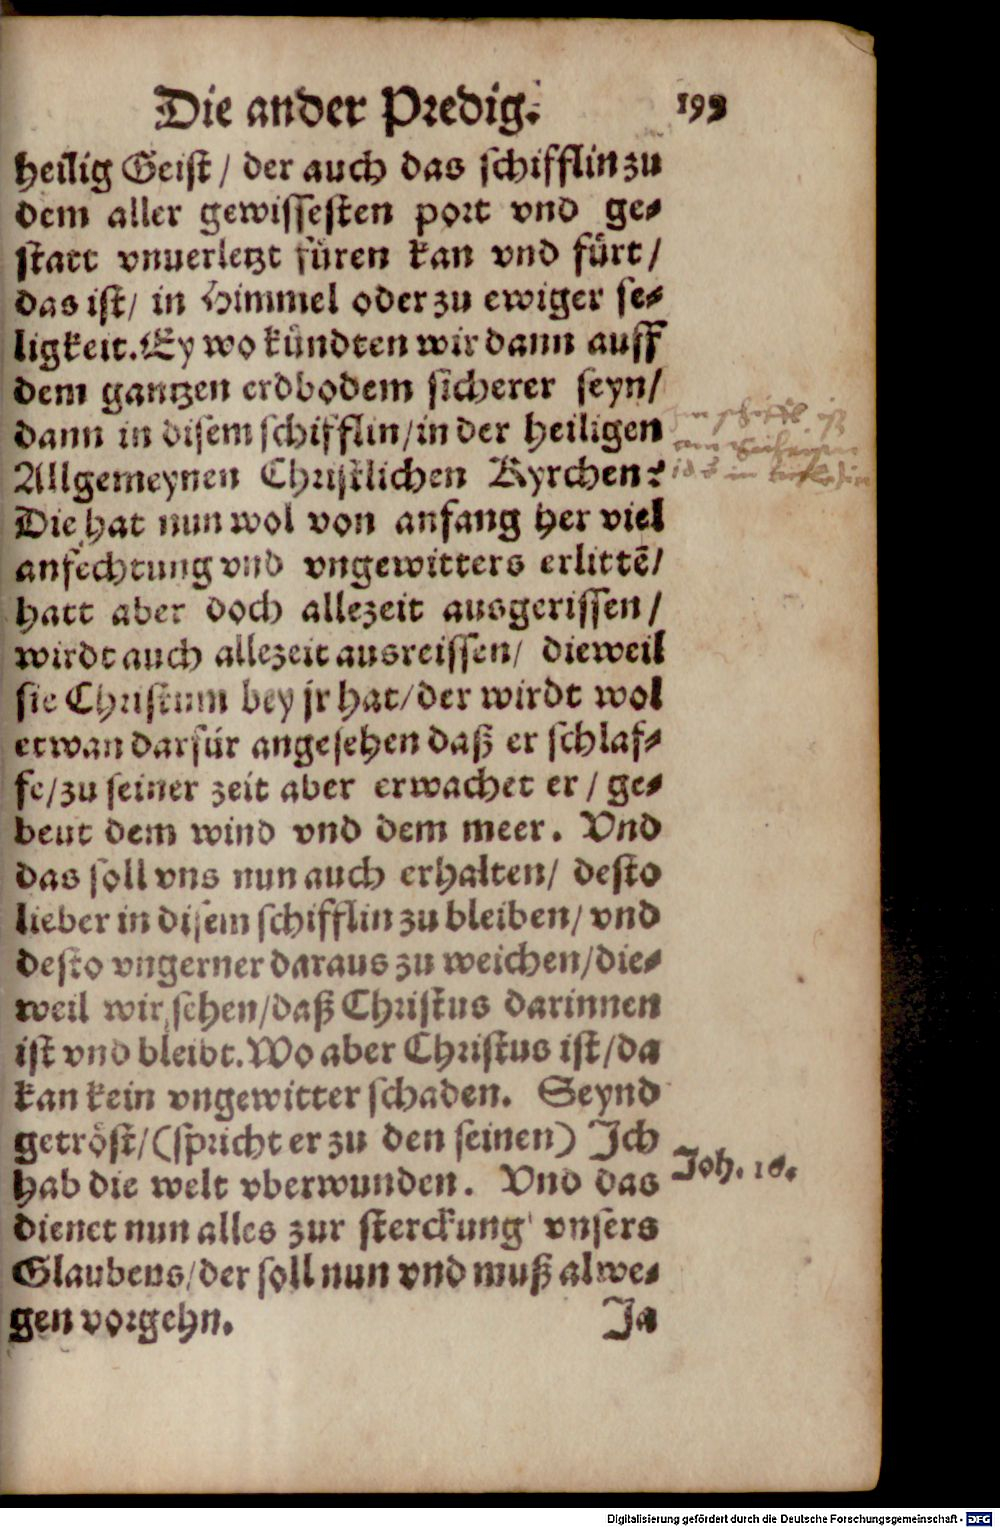 Die ander Predig. 199
heilig Geist / der auch das schifflin zu
dem aller gewissesten port vnd ge⸗
statt vnuerletzt füren kan vnd fürt /
das ist / in Himmel oder zu ewiger se⸗
ligkeit. Ey wo kündten wir dann auff
dem gantzen erdbodem sicherer seyn /
dann in disem schifflin / in der heiligen
Allgemeynen Christlichen Kyrchen?
Die hat nun wol von anfang her viel
anfechtung vnd vngewitters erlittē /
hatt aber doch allezeit ausgerissen /
wirdt auch allezeit ausreissen / dieweil
sie Christum bey jr hat / der wirdt wol
etwan darfür angesehen daß er schlaf⸗
fe / zu seiner zeit aber erwachet er / ge⸗
beut dem wind vnd dem meer. Vnd
das soll vns nun auch erhalten / desto
lieber in disem schifflin zu bleiben / vnd
desto vngerner daraus zu weichen / die⸗
weil wir sehen / daß Christus darinnen
ist vnd bleibt. Wo aber Christus ist / da
kan kein vngewitter schaden. Seynd
getröst / (spricht er zu den seinen) Ich
hab die welt vberwunden. Vnd das
Joh. 16.
dienet nun alles zur sterckung vnsers
Glaubens / der soll nun vnd muß alwe⸗
gen vorgehn. Ja
Digitalisierung gefördert durch die Deutsche Forschungsgemeinschaft - DFG